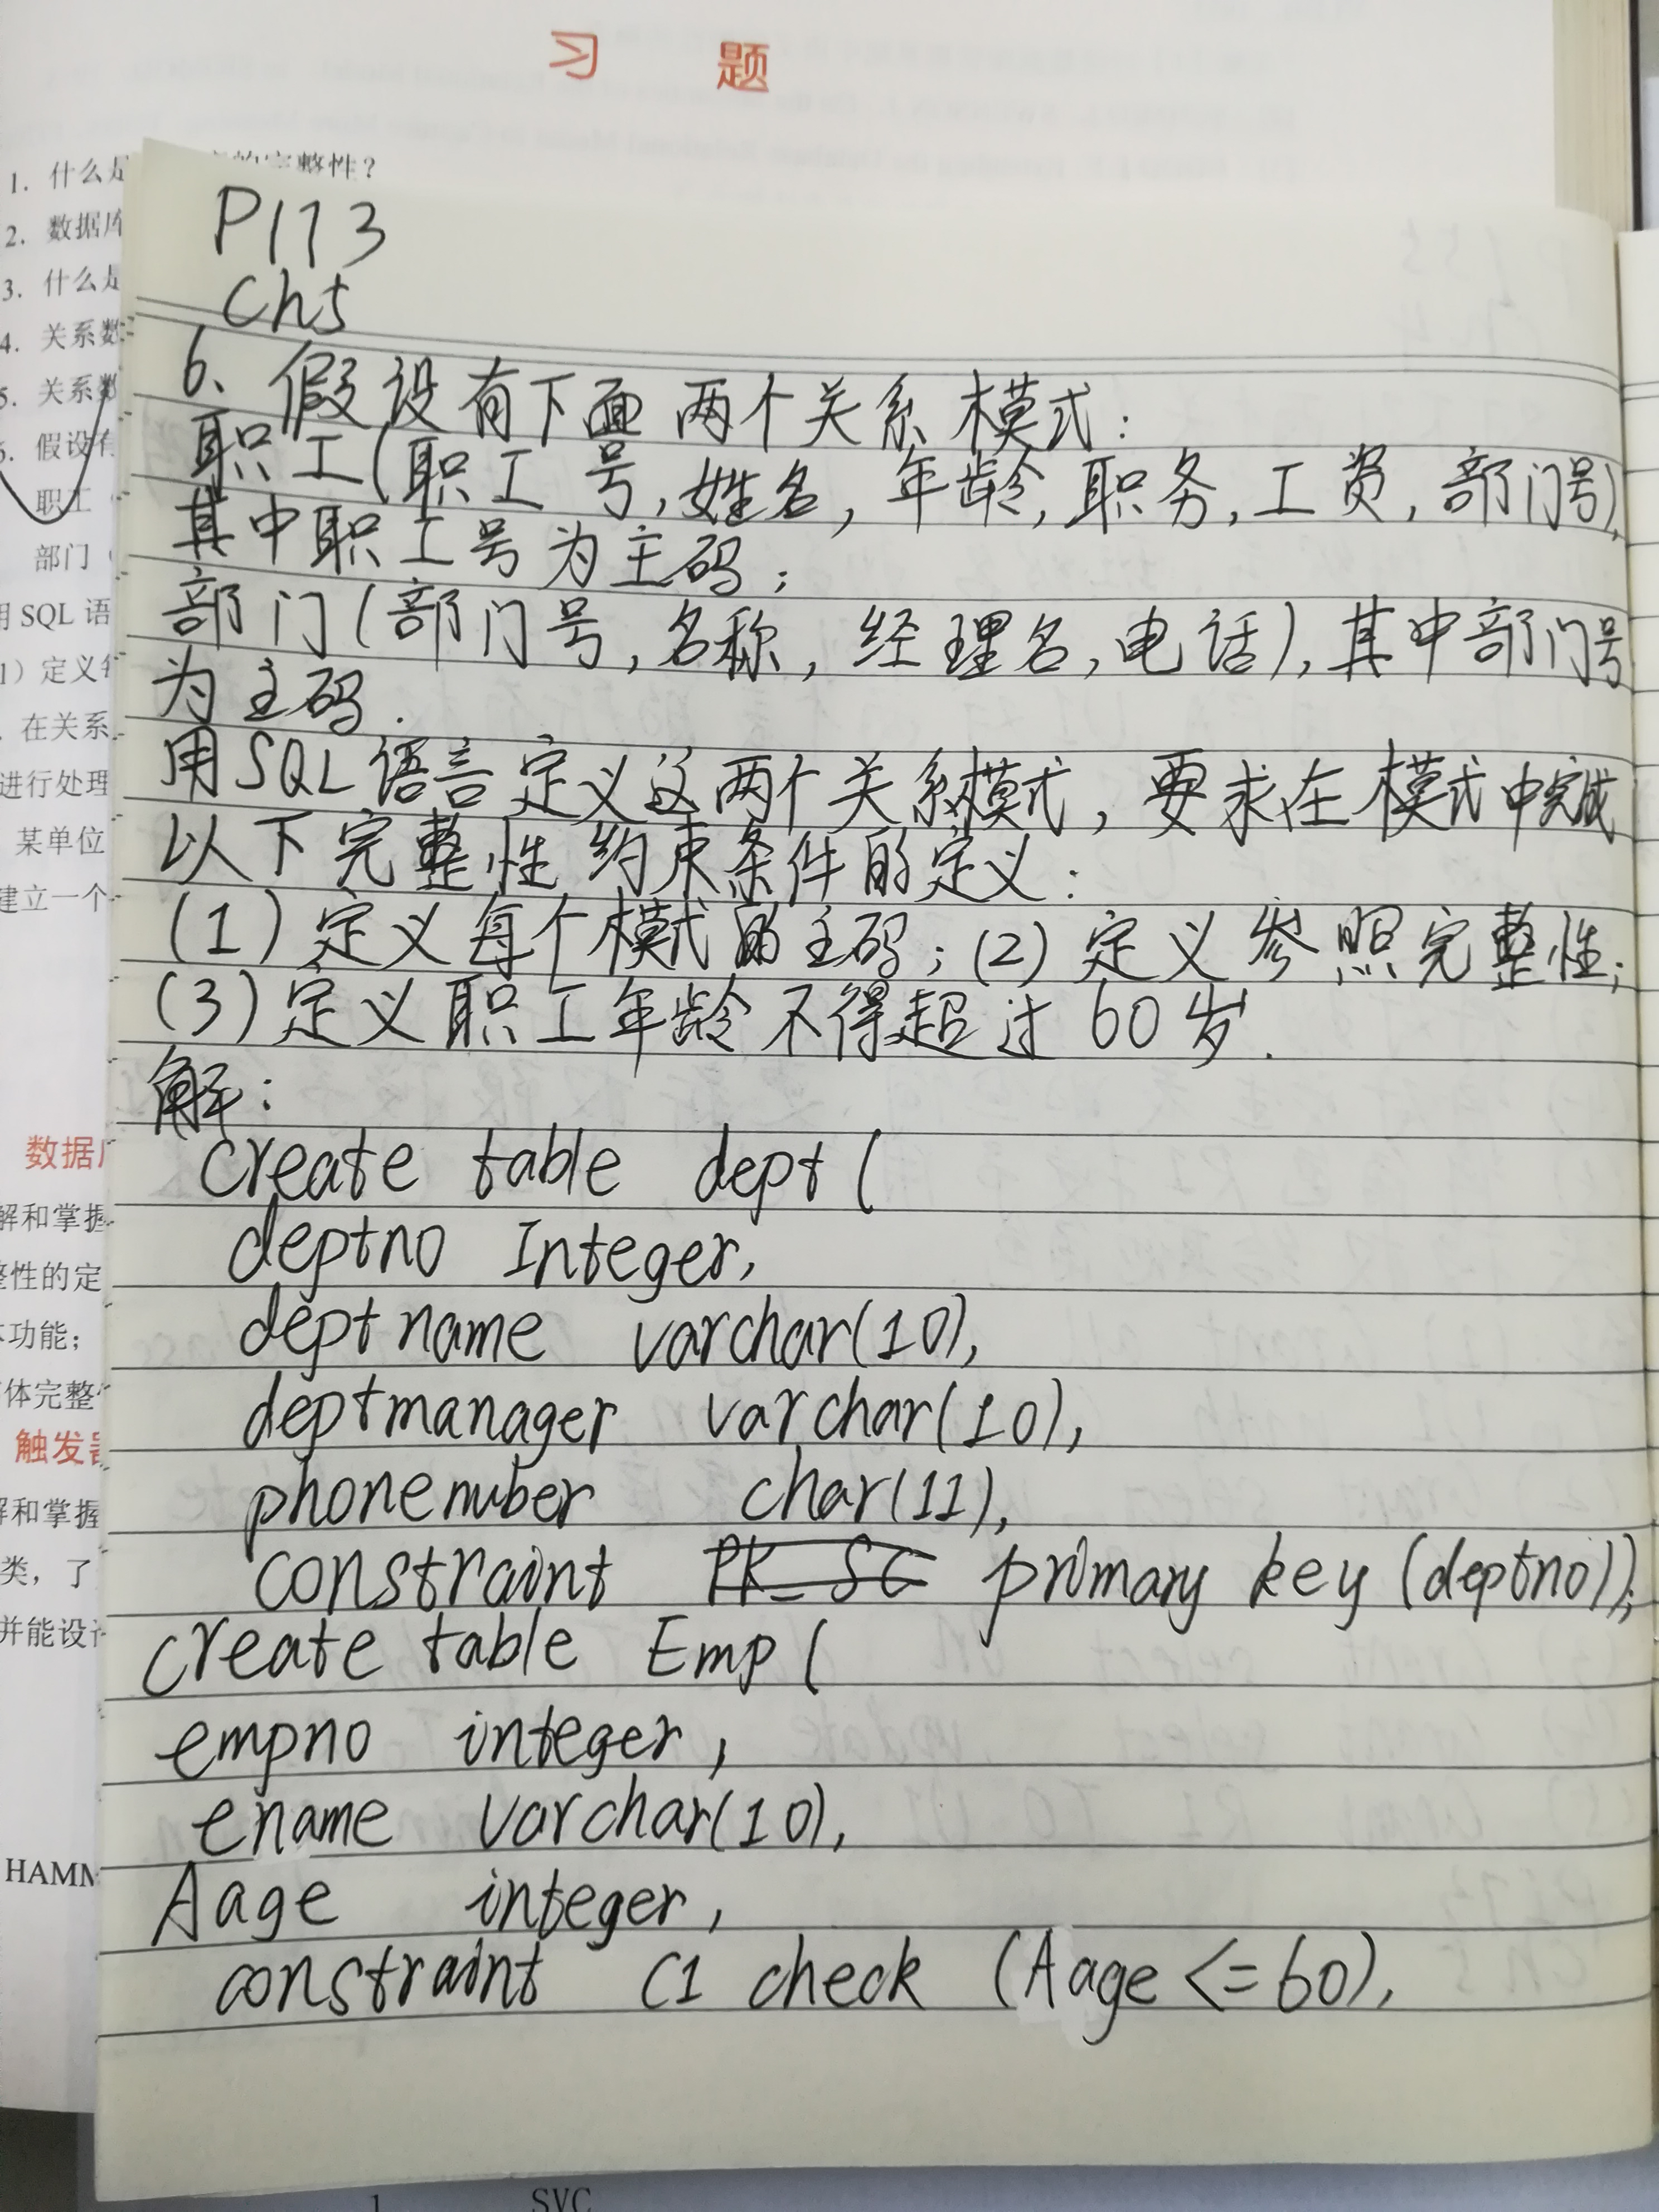 习 题
1. 什么是 的完整性?
2. 数据库
3. 什么是
4. 关系数
5. 关系数
6. 假设有
职工
部门(
用 SQL 语
1)定义每
, 在关系
进行处理
某单位
建立一个
数据库
解和掌握
整性的定
功能;
体完整性
触发器
解和掌握
类, 了
并能设计
HAMM
P173
Ch5
6、假设有下面两个关系模式:
职工(职工号,姓名,年龄,职务,工资,部门号),
其中职工号为主码;
部门(部门号,名称,经理名,电话),其中部门号
为主码.
用SQL语言定义这两个关系模式,要求在模式中完成
以下完整性约束条件的定义:
(1)定义每个模式的主码;(2)定义参照完整性;
(3)定义职工年龄不得超过60岁.
解:
create table dept(
deptno Integer,
deptname varchar(10),
deptmanager varchar(10),
phonenumber char(11),
constraint PK_SC primary key (deptno));
create table Emp(
empno integer,
ename varchar(10),
Aage integer,
constraint C1 check (Aage<=60),
1 SVC